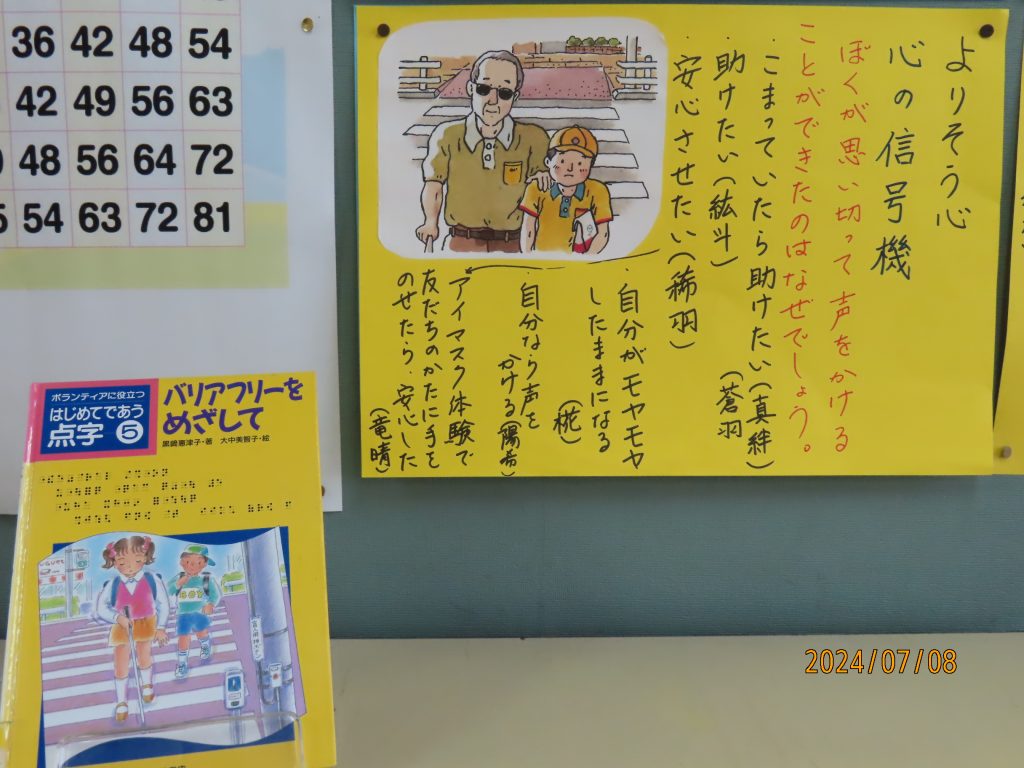 36 42 48 54
42 49 56 63
48 56 64 72
54 63 72 81
よりそう心
心の信号機
ぼくが思い切って声をかける
ことができたのはなぜでしょう。
・こまっていたら助けたい(真絆)
(蒼羽
助けたい(紘斗)
・安心させたい(稀羽)
・自分がモヤモヤ
したままになる
(椛)
・自分なら声を
かける(陽希)
・アイマスク体験で
友だちのかたに手を
のせたら、安心した
(竜晴)
ボランティアに役立つ
はじめてであう
点字 5
バリアフリーを
めざして
黒崎惠津子・著 大中美智子・絵
2024/07/08